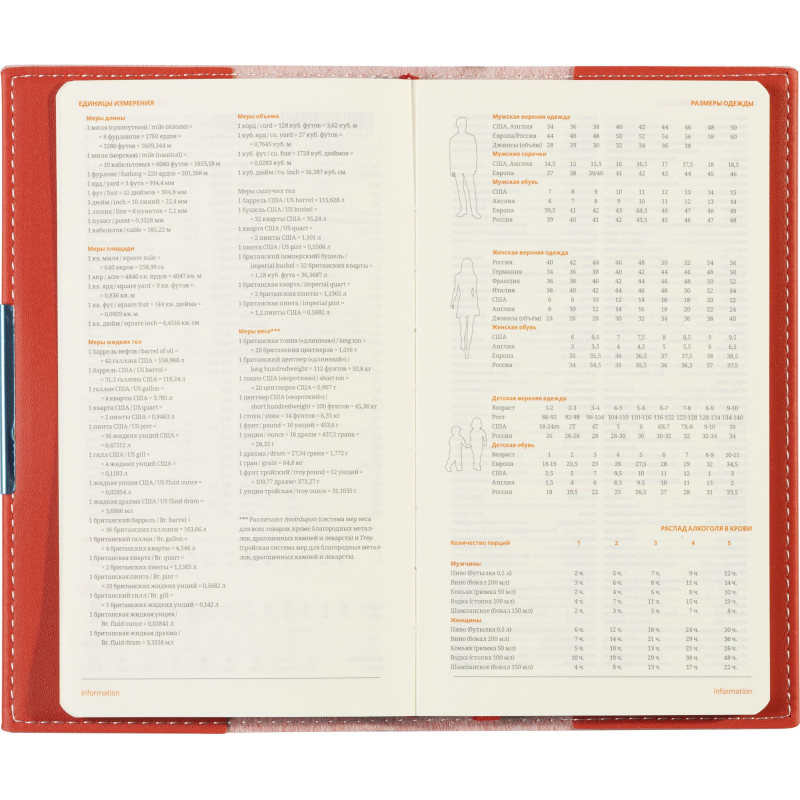 ЕДИНИЦЫ ИЗМЕРЕНИЯ
Меры длины
1 миля (сухопутная) / mile (statute) =
= 8 фурлонгов = 1760 ярдов =
= 5280 футов = 1609,344 м
1 миля (морская) / mile (nautical) =
= 10 кабельтовых = 6080 футов = 1853,18 м
1 фурлонг / furlong = 220 ярдов = 201,168 м
1 ярд / yard = 3 фута = 914,4 мм
1 фут / foot = 12 дюймов = 304,8 мм
1 дюйм / inch = 10 линий = 25,4 мм
1 линия / line = 6 пунктов = 2,1 мм
1 пункт / point = 0,3528 мм
1 кабельтов / cable = 185,22 м
Меры площади
1 кв. миля / square mile =
= 640 акров = 258,99 га
1 акр / acre = 4840 кв. ярдов = 4047 кв. м
1 кв. ярд / square yard = 9 кв. футов =
= 0,836 кв. м
1 кв. фут / square foot = 144 кв. дюйма =
= 0,0929 кв. м
1 кв. дюйм / square inch = 6,4516 кв. см
Меры жидких тел
1 баррель нефти / barrel of oil =
= 42 галлона США = 158,986 л
1 баррель США / US barrel =
= 31,5 галлона США = 119,24 л
1 галлон США / US gallon =
= 4 кварты США = 3,785 л
1 кварта США / US quart =
= 2 пинты США = 0,9463 л
1 пинта США / US pint =
= 16 жидких унций США =
= 0,47312 л
1 гилл США / US gill =
= 4 жидких унций США =
= 0,1183 л
1 жидкая унция США / US fluid ounce =
= 0,02954 л
1 жидкая драхма США / US fluid dram =
= 3,6966 мл
1 британский баррель / Br. barrel =
= 36 британских галлонов = 163,66 л
1 британский галлон / Br. gallon =
= 4 британских кварты = 4,546 л
1 британская кварта / Br. quart =
= 2 британских пинты = 1,1365 л
1 британская пинта / Br. pint =
= 20 британских жидких унций = 0,5682 л
1 британский гилл / Br. gill =
= 5 британских жидких унций = 0,142 л
1 британская жидкая унция /
Br. fluid ounce = 0,02841 л
1 британская жидкая драхма /
Br. fluid dram = 3,5516 мл
Меры объема
1 корд / cord = 128 куб. футов = 3,62 куб. м
1 куб. ярд / cu. yard = 27 куб. футов =
= 0,7645 куб. м
1 куб. фут / cu. foot = 1728 куб. дюймов =
= 0,0283 куб. м
1 куб. дюйм / cu. inch = 16,387 куб. см
Меры сыпучих тел
1 баррель США / US barrel = 115,628 л
1 бушель США / US bushel =
= 32 кварты США = 35,24 л
1 кварта США / US quart =
= 2 пинты США = 1,101 л
1 пинта США / US pint = 0,5506 л
1 британский (имперский) бушель /
imperial bushel = 32 британских кварты =
= 1,28 куб. фута = 36,3687 л
1 британская кварта / imperial quart =
= 2 британских пинты = 1,1365 л
1 британская пинта / imperial pint =
= 1,2 пинты США = 0,5682 л
Меры веса***
1 британская тонна «длинная») / long ton =
= 20 британских центнеров = 1,016 т
1 британский центнер «длинный») /
long hundredweight = 112 фунтов = 50,8 кг
1 тонна США «короткая») / short ton =
= 20 центнеров США = 0,907 т
1 центнер США «короткий») /
short hundredweight = 100 фунтов = 45,36 кг
1 стоун / stone = 14 фунтов = 6,35 кг
1 фунт / pound = 16 унций = 453,6 г
1 унция / ounce = 16 драхм = 437,5 грана =
= 28,35 г
1 драхма / dram = 27,34 грана = 1,772 г
1 гран / grain = 64,8 мг
1 фунт тройский / troy pound = 12 унций =
= 109,77 драхм = 373,27 г
1 унция тройская / troy ounce = 31,1035 г
*** Различают Avoirdupois (система мер веса
для всех товаров, кроме благородных метал-
лов, драгоценных камней и лекарств) и Troy
(тройская система мер для благородных метал-
лов, драгоценных камней и лекарств).
information
РАЗМЕРЫ ОДЕЖДЫ
Мужская верхняя одежда
США, Англия 34 36 38 40 42 44 46 48 50
Европа/Россия 44 46 48 50 52 54 56 58 60
Джинсы (объём) 28 29 30 32 34 36 38
Мужские сорочки
США, Англия 14,5 15 15,5 16 16,5 17 17,5 18 18,5
Европа 37 38 39/40 41 42 43 44 45 46
Мужская обувь
США 7 8 9 10 11 12 13 14 15
Англия 6 7 8 9 10 11 12 13 14
Европа 39,5 41 42 43 44,5 46 47 48 49
Россия 39 40 41 42 43,5 45 46 47 48
Женская верхняя одежда
Россия 40 42 44 46 48 50 52 54 56
Германия 34 36 38 40 42 44 46 48 50
Франция 36 38 40 42 44 46 48 50 52
Италия 38 40 42 44 46 48 50 52 54
США 6 8 10 12 14 16 18 20 22
Англия 8 10 12 14 16 18 20 22 24
Джинсы (объём) 24 26 28 30 32 34 36 38 40
Женская обувь
США 6 6,5 7 7,5 8 8,5 9 9,5
Англия 3 3,5 4 4,5 5 5,5 6 6,5
Европа 35 35,5 36 36,5 37 37,5 38 38,5
Россия 34 34,5 35 35,5 36 36,5 37 37,5
Детская верхняя одежда
Возраст 1-2 2-3 3-4 4-5 5-6 6-7 7-8 8-9 9-10
Рост 86-92 92-98 98-104 104-110 110-116 116-122 122-128 128-134 134-140
США 18-24m 2T 4T 5 6 6X-7 7X-8 9-10 50
Россия 26 26-28 28 28-30 30 30-32 32 32-34 34
Детская обувь
Возраст 1 2 3 4 5 6 7 8-9 10-11
Европа 18-19 20,5 23 26 27,5 28 29 32 34,5
США 2,5 5 7 9,5 10 11 12 1 3
Англия 1,5 4 6 8,5 9,5 10 11 13 2
Россия 18 19,5 22 25 26,5 27 28 31 33,5
РАСПАД АЛКОГОЛЯ В КРОВИ
Количество порций 1 2 3 4 5
Мужчины
Пиво (бутылка 0,5 л) 2 ч. 5 ч. 7 ч. 9 ч. 12 ч.
Вино (бокал 200 мл) 3 ч. 6 ч. 8 ч. 11 ч. 14 ч.
Коньяк (рюмка 50 мл) 2 ч. 4 ч. 6 ч. 8 ч. 10 ч.
Водка (стопка 100 мл) 4 ч. 7 ч. 11 ч. 15 ч. 19 ч.
Шампанское (бокал 150 мл) 2 ч. 3 ч. 5 ч. 7 ч. 8 ч.
Женщины
Пиво (бутылка 0,5 л) 6 ч. 12 ч. 18 ч. 24 ч. 30 ч.
Вино (бокал 200 мл) 7 ч. 14 ч. 21 ч. 29 ч. 36 ч.
Коньяк (рюмка 50 мл) 5 ч. 10 ч. 13 ч. 21 ч. 26 ч.
Водка (стопка 100 мл) 10 ч. 19 ч. 29 ч. 38 ч. 48 ч.
Шампанское (бокал 150 мл) 4 ч. 8 ч. 13 ч. 17 ч. 22 ч.
information